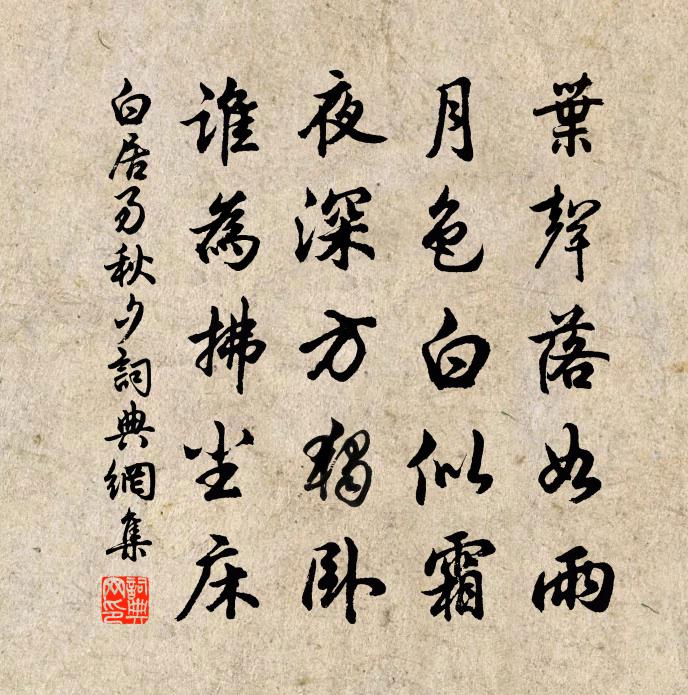 葉聲落如雨
月色白似霜
夜深方獨臥
誰為拂尘床
白居易秋夕詞典網集
詞典網印